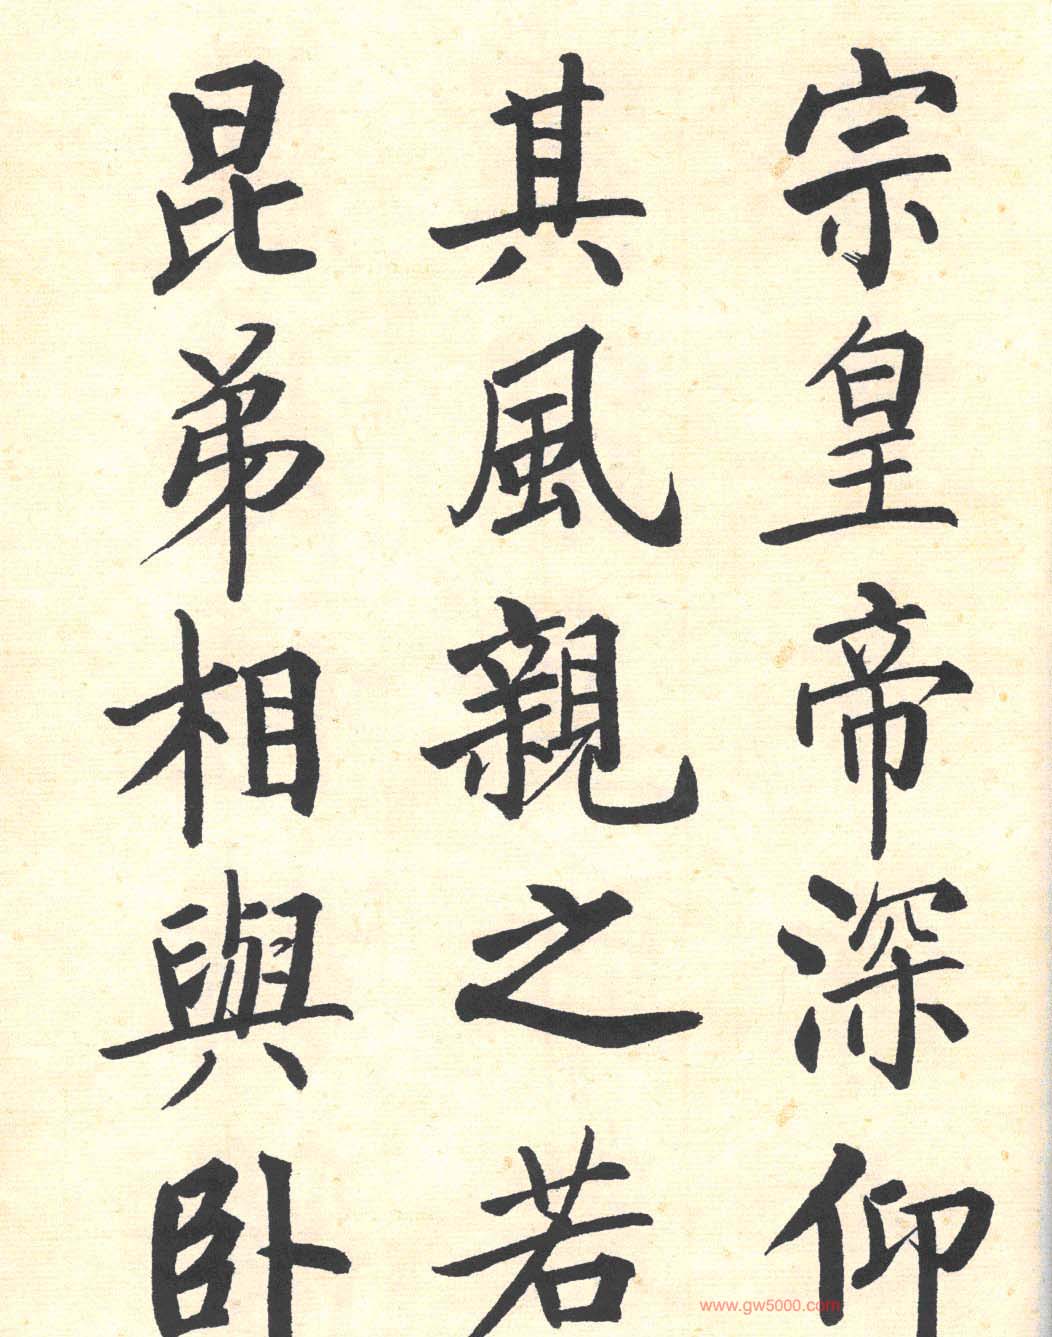 宗皇帝深仰
其風親之若
昆弟相與卧
www.gw5000.com